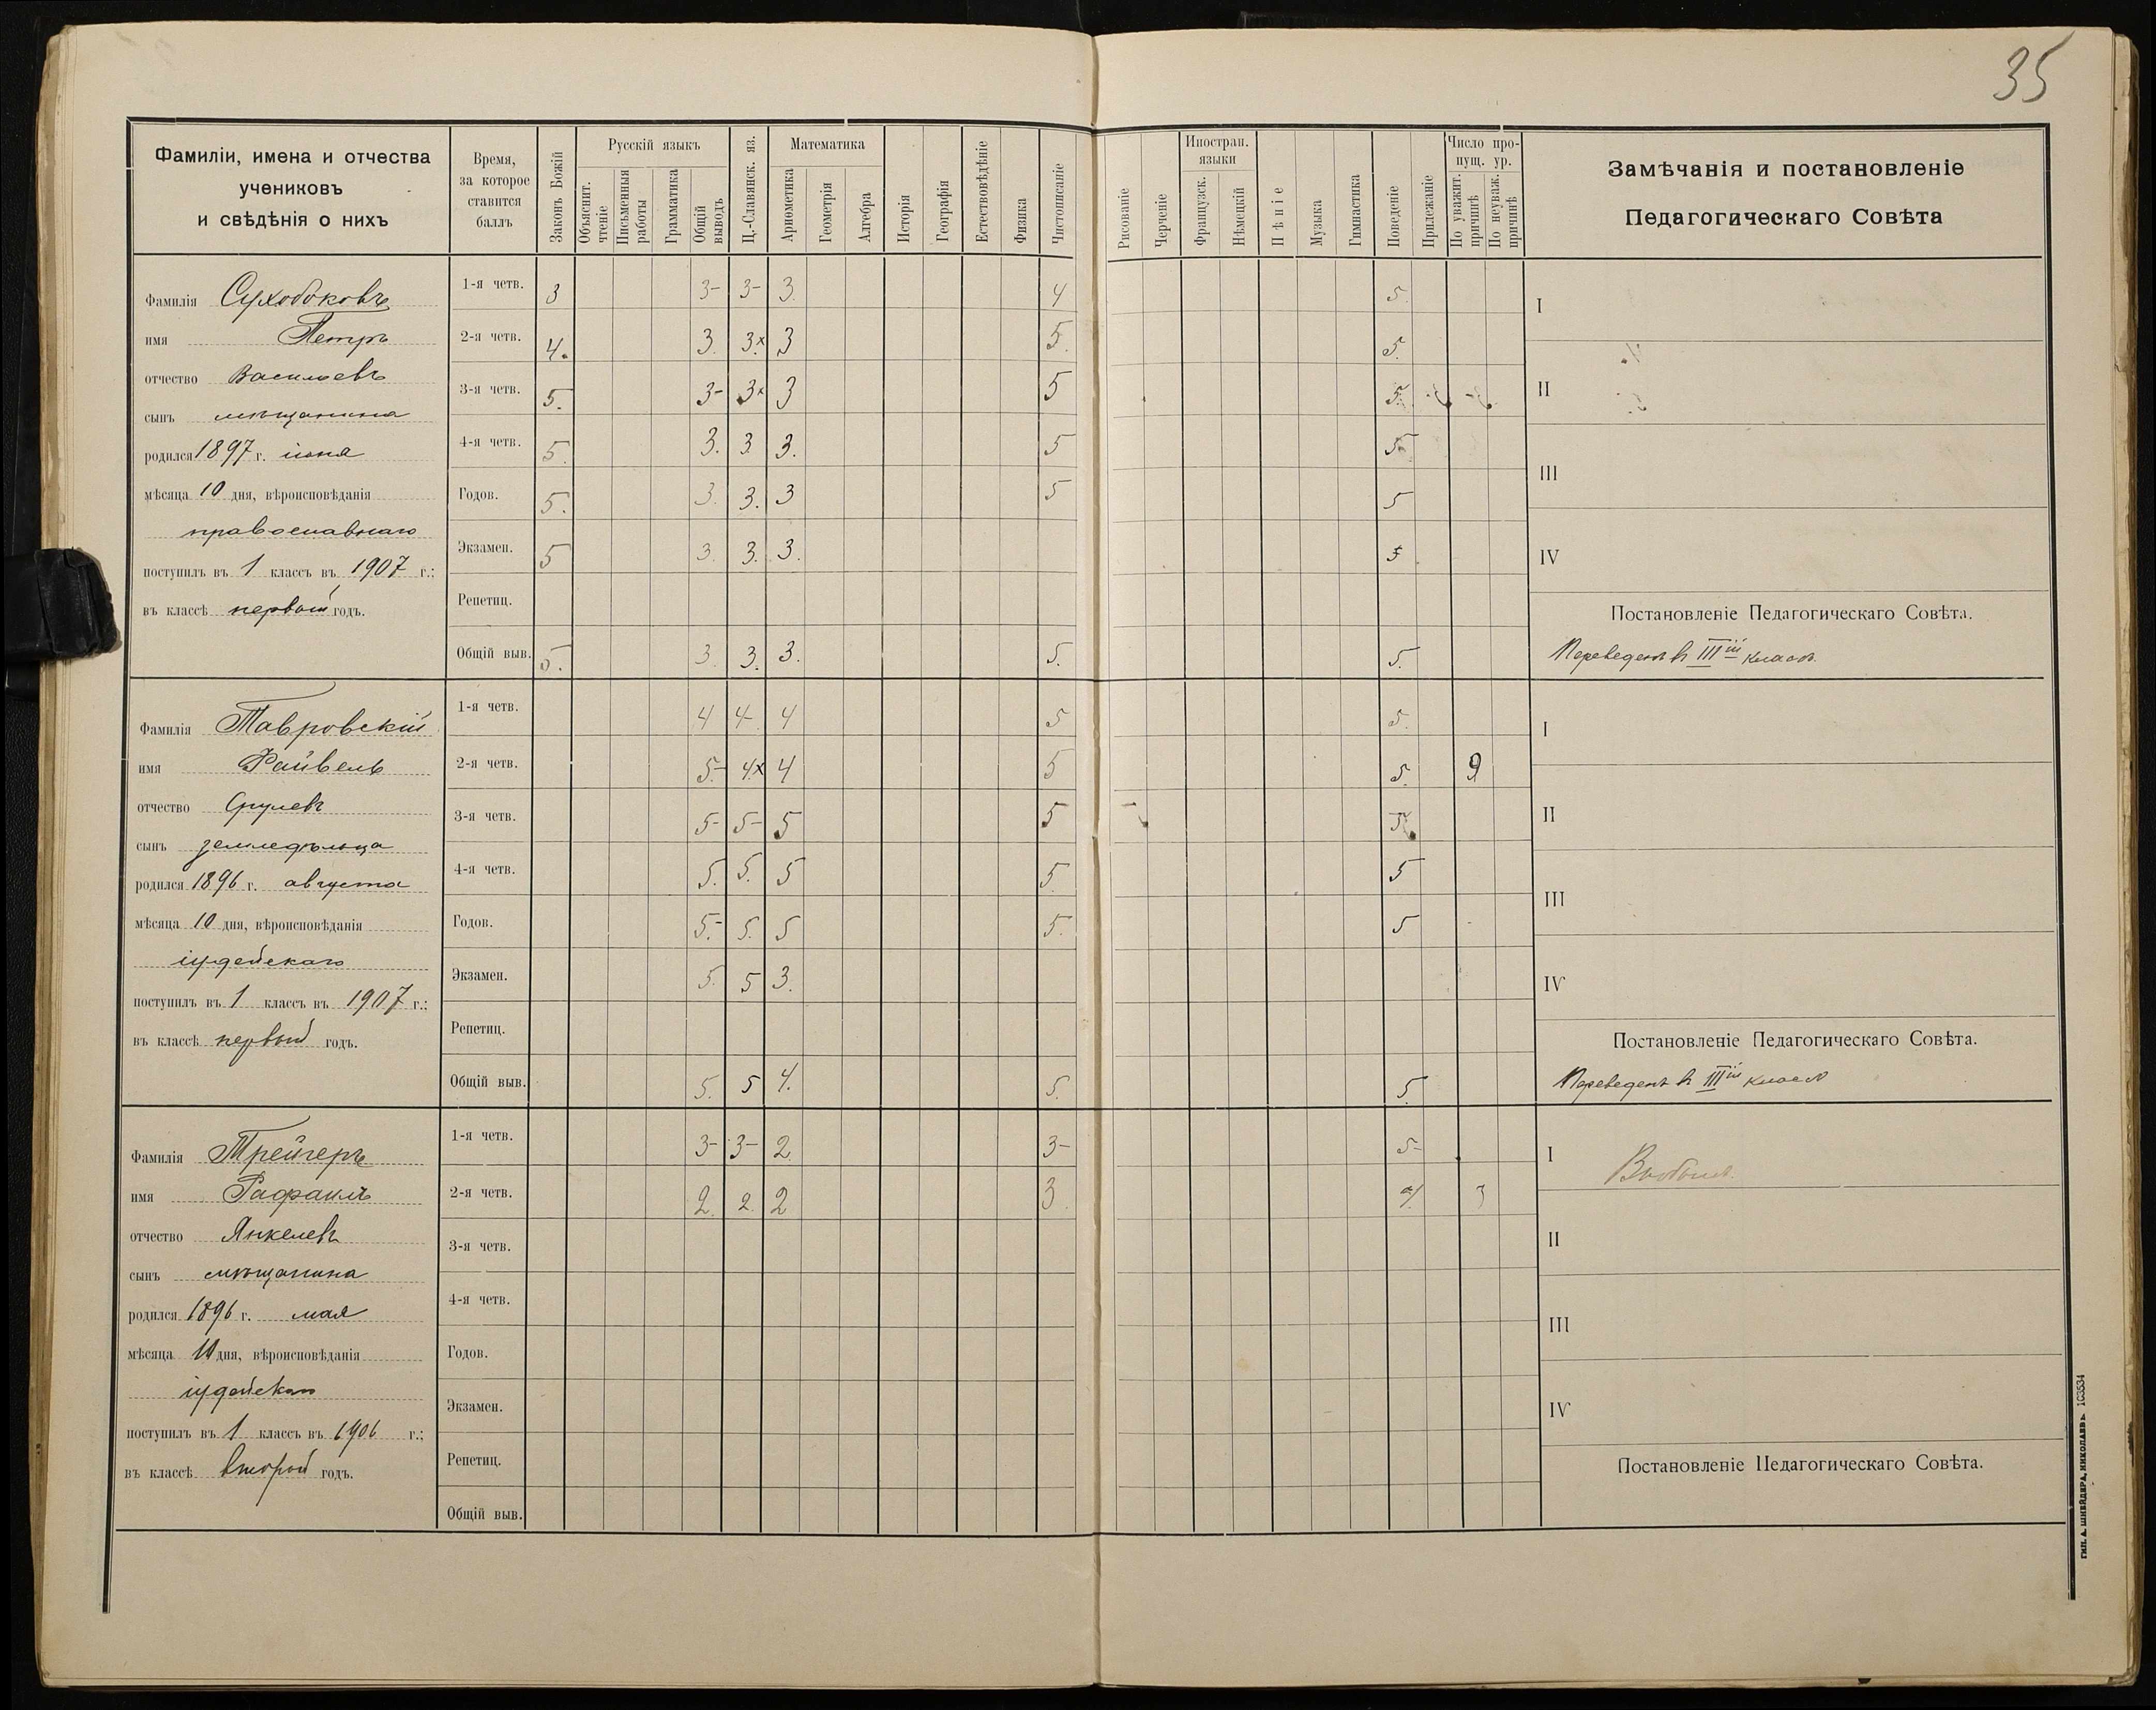 35
Фамиліи, имена и отчества
учениковъ
и свѣдѣнія о нихъ
Время,
за которое
ставится
баллъ
Законъ Божій
Русскій языкъ
Объяснит. чтеніе
Письменныя работы
Грамматика
Общій выводъ
Ц.-Славянск. яз.
Математика
Ариѳметика
Геометрія
Алгебра
Исторія
Географія
Естествовѣдѣніе
Физика
Чистописаніе
Рисованіе
Черченіе
Иностран. языки
Французск.
Нѣмецкій
Пѣніе
Музыка
Гимнастика
Поведеніе
Прилежаніе
Число пропущ. ур.
По уважит. причинѣ
По неуваж. причинѣ
Замѣчанія и постановленіе
Педагогическаго Совѣта
Фамилія Суходоковъ
имя Петръ
отчество Васильевъ
сынъ мѣщанина
родился 1897 г. іюня
мѣсяца 10 дня, вѣроисповѣданія
православнаго
поступилъ въ 1 классъ въ 1907 г.:
въ классѣ первый годъ.
1-я четв. 3 3- 3- 3. 4 5.
2-я четв. 4. 3. 3.x 3 5. 5.
3-я четв. 5. 3- 3x 3 5 5.
4-я четв. 5. 3. 3 3. 5 5
Годов. 5. 3. 3. 3 5 5
Экзамен. 5 3. 3. 3. 5
Репетиц.
Общій выв. 5. 3. 3. 3. 5. 5.
I
II
III
IV
Постановленіе Педагогическаго Совѣта.
Переведенъ въ IIIій классъ.
Фамилія Тавровскій
имя Файвель
отчество Срулевъ
сынъ земледѣльца
родился 1896 г. августа
мѣсяца 10 дня, вѣроисповѣданія
іудейскаго
поступилъ въ 1 классъ въ 1907 г.:
въ классѣ первый годъ.
1-я четв. 4 4- 4 5 5.
2-я четв. 5- 4x 4 5 5. 9
3-я четв. 5- 5- 5 5 5
4-я четв. 5. 5. 5 5. 5
Годов. 5.- 5. 5 5. 5
Экзамен. 5. 5 3.
Репетиц.
Общій выв. 5. 5 4. 5. 5.
I
II
III
IV
Постановленіе Педагогическаго Совѣта.
Переведенъ въ IIIій классъ
Фамилія Трейгеръ
имя Рафаилъ
отчество Янкелевъ
сынъ мѣщанина
родился 1896 г. мая
мѣсяца 10 дня, вѣроисповѣданія
іудейскаго
поступилъ въ 1 классъ въ 1906 г.:
въ классѣ второй годъ.
1-я четв. 3- 3- 2 3- 5-
2-я четв. 2. 2. 2 3.
3-я четв.
4-я четв.
Годов.
Экзамен.
Репетиц.
Общій выв.
I Выбылъ.
II
III
IV
Постановленіе Педагогическаго Совѣта.
тип. А. ШНЕЙДЕРА, НИКОЛАЕВЪ. 103534